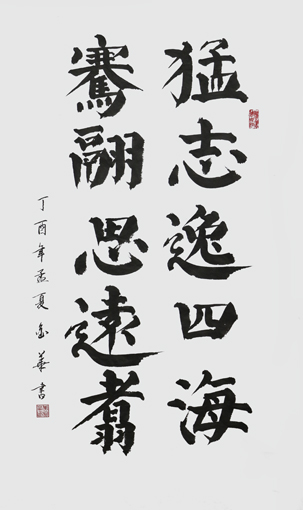 猛志逸四海
騫翮思遠翥
丁酉年孟夏金華書